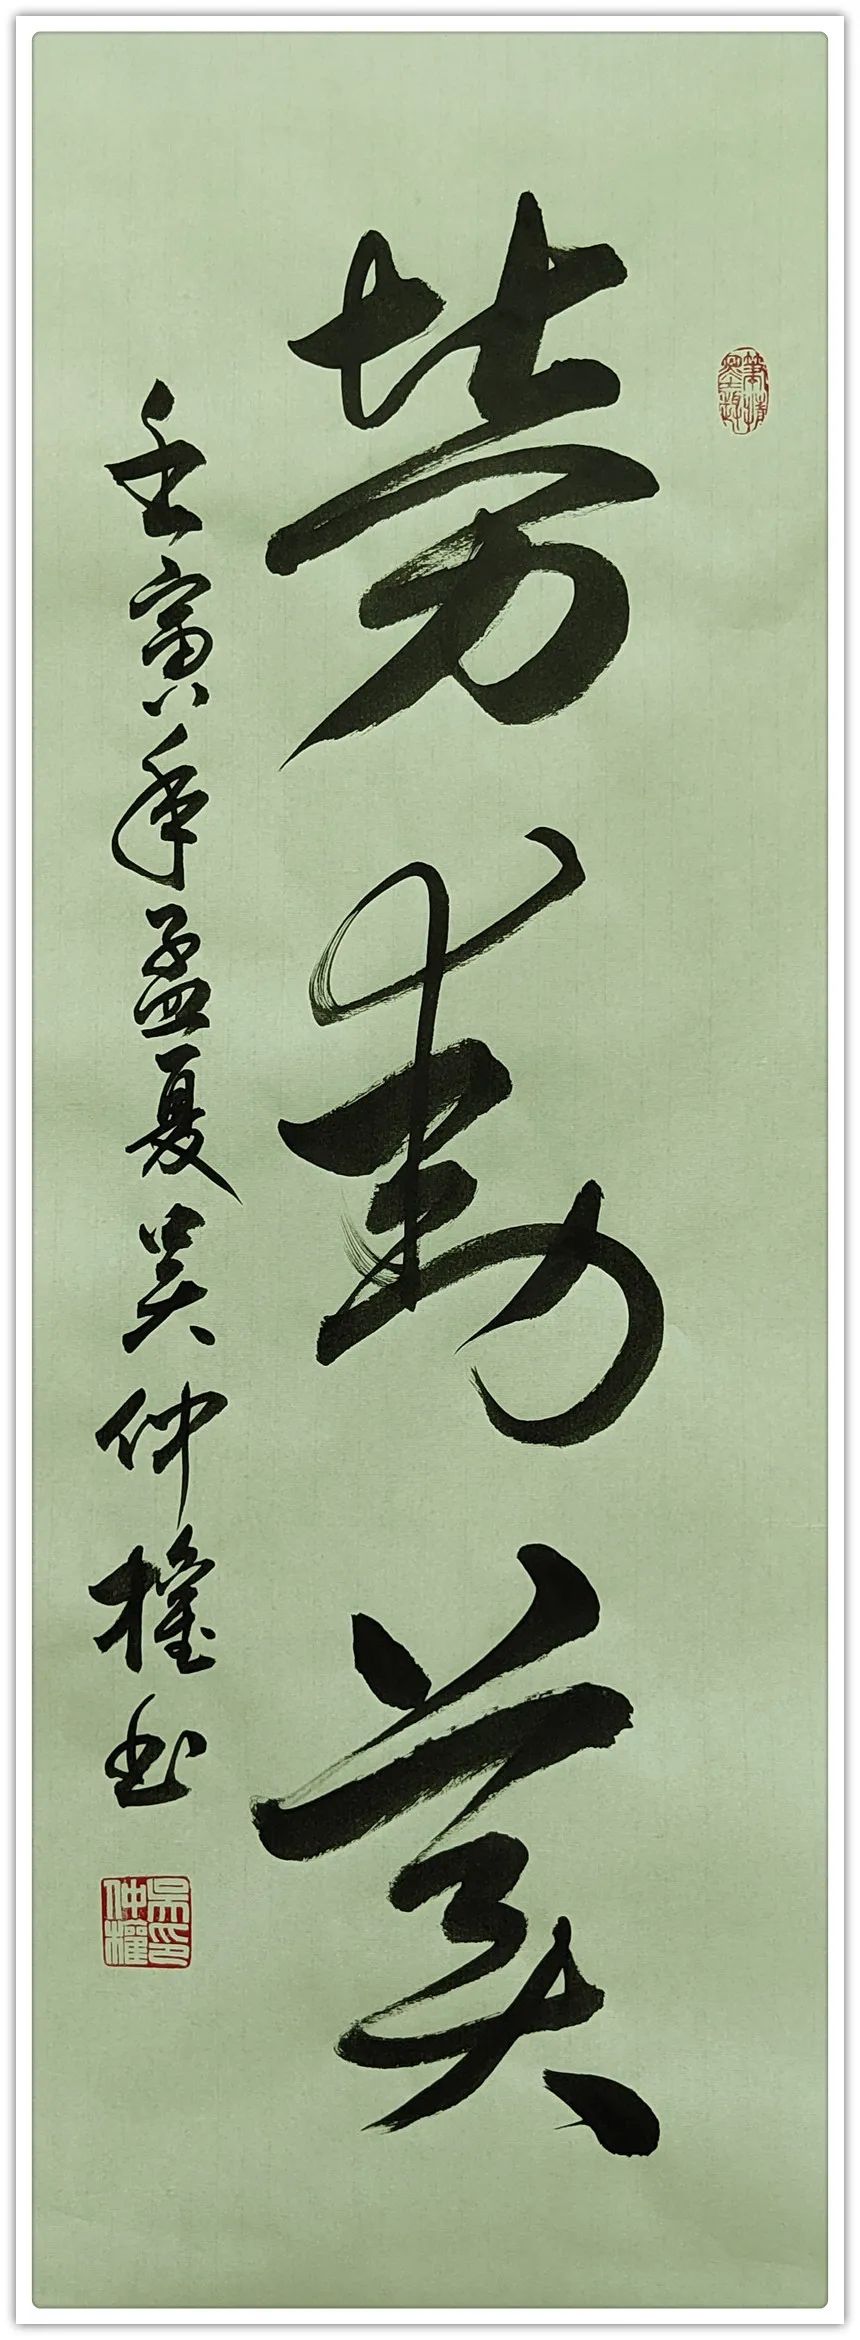 劳动美
壬寅年孟夏吴仲權书
吴印仲權